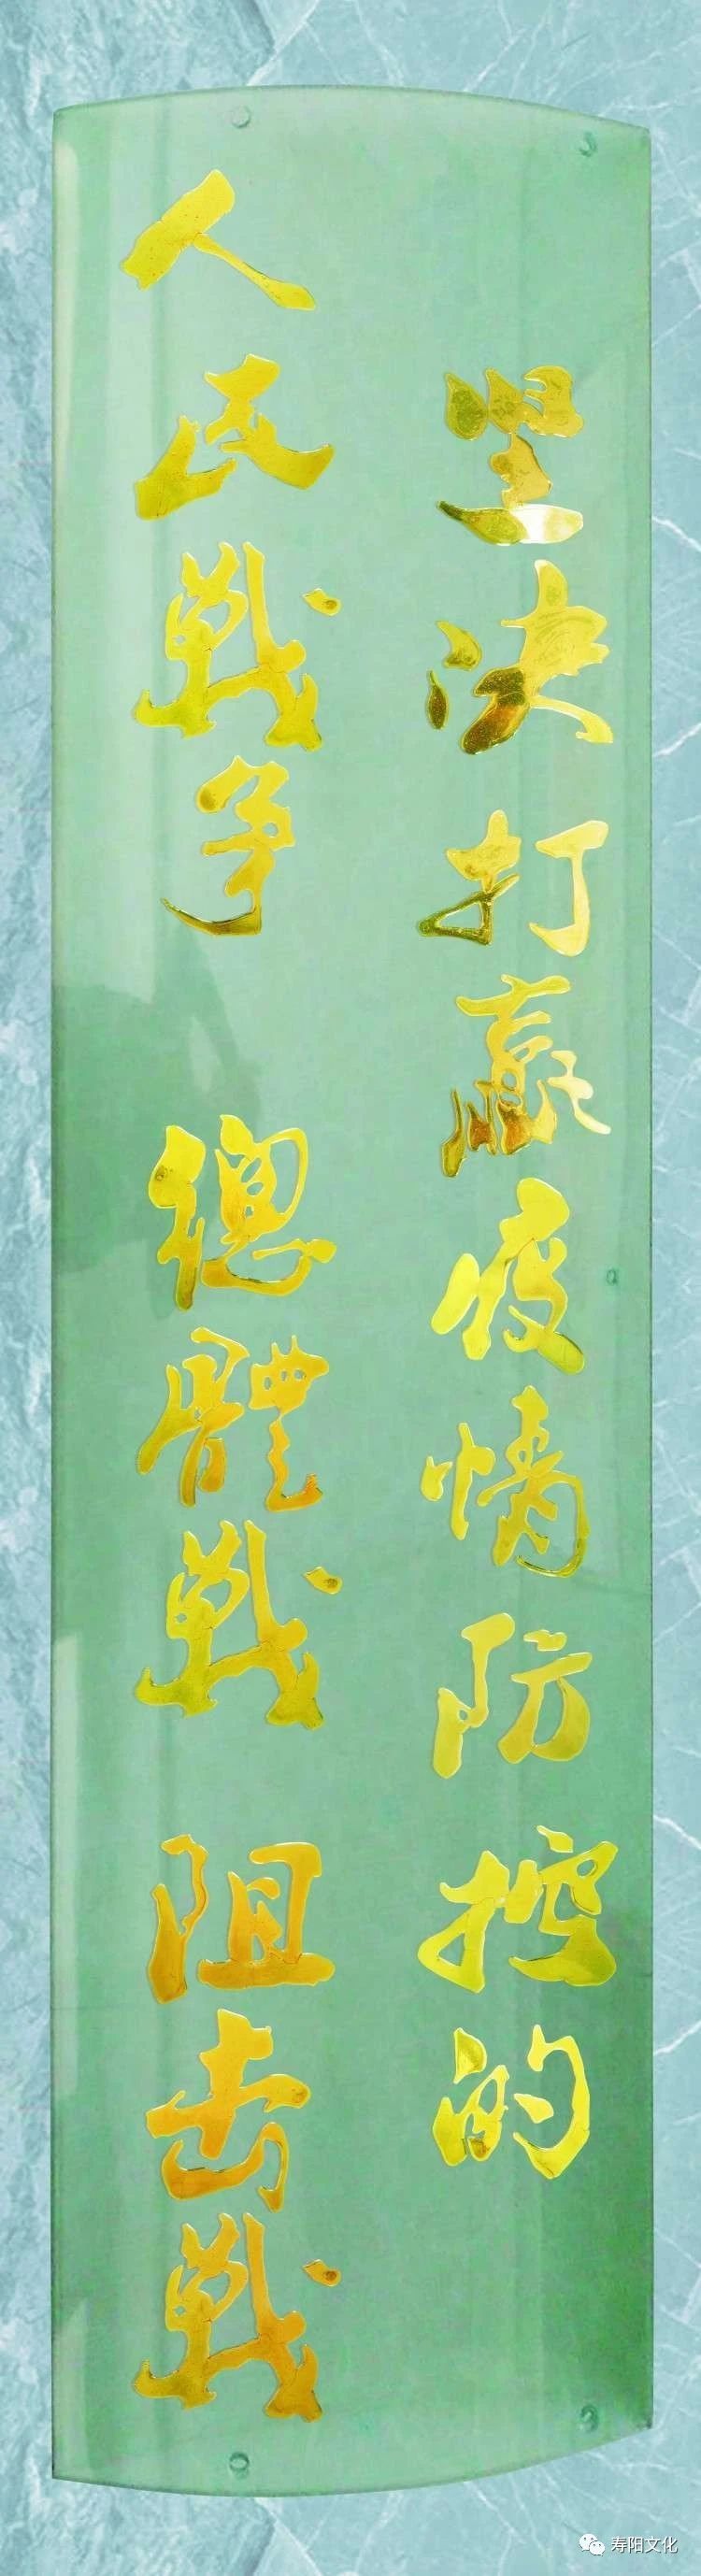 坚决打赢疫情防控的
人民戰争 總體戰 阻击戰
寿阳文化